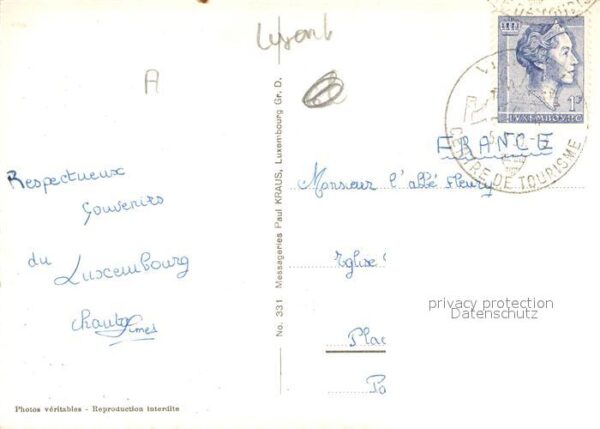 A
Respectueux
Souvenirs
du
Luxembourg
No. 331 Messageries Paul KRAUS, Luxembourg Gr. D.
1F
LUXEMBOURG
CENTRE DE TOURISME
FRANCE
Monsieur l'abbé Fleury
Eglise
Plac
privacy protection
Datenschutz
Photos véritables - Reproduction interdite